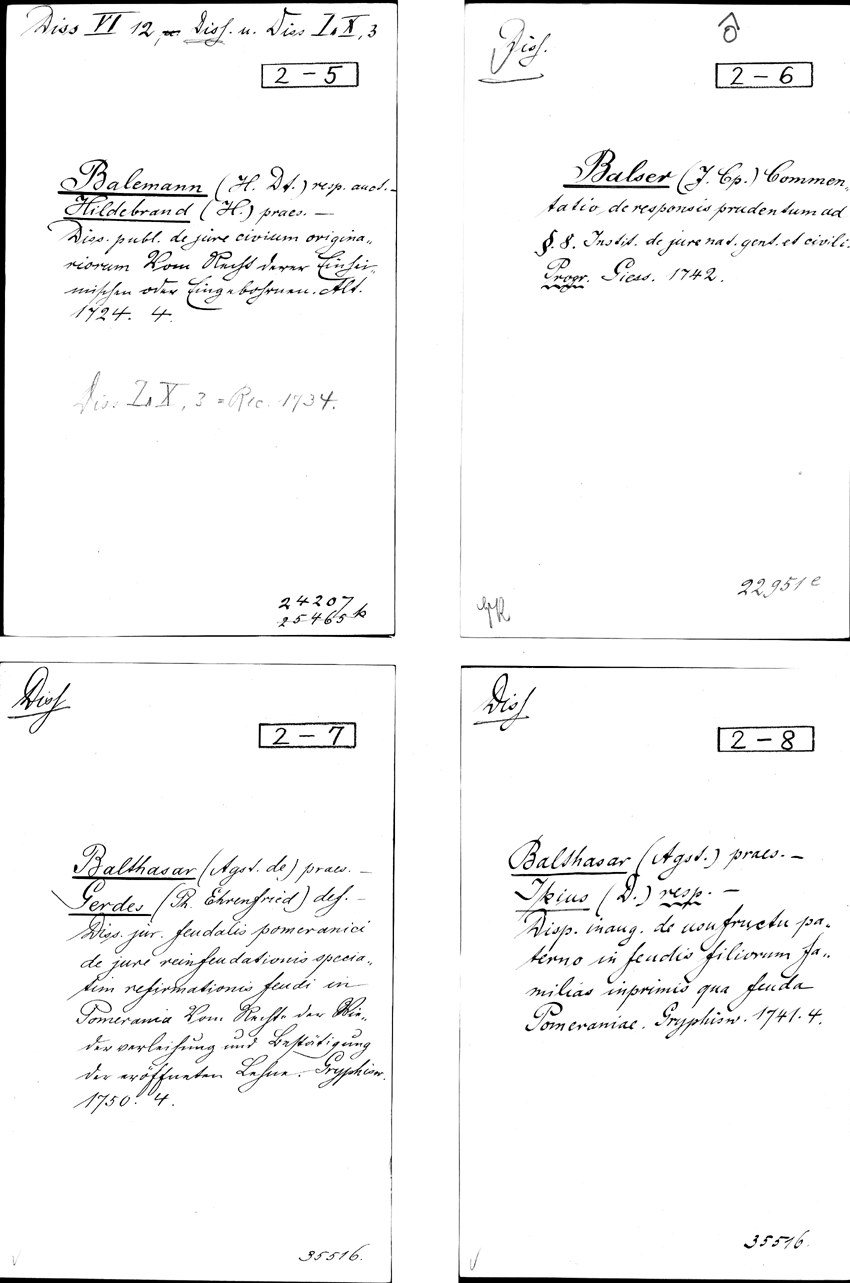 Diss VI 12, Diss. u. Diss I.X, 3
2 – 5
Balemann (H. Dt.) resp. auct. –
Hildebrand (H.) praes. –
Diss. publ. de jure civium origina„
riorum Vom Recht derer Einhei„
mischen oder Eingebohrnen. Alt.
1724. 4.
Diss I.X, 3 = Rec. 1734.
24207
25465
Diss.
2 – 6
Balser (J. Cp.) Commen„
tatio de responsis prudentum ad
§. 8. Instit. de jure nat. gent. et civili.
Progr. Giess. 1742.
22951 e
Diss
2 – 7
Balthasar (Agst. de) praes. –
Gerdes (Ph. Ehrenfried) def. –
Diss. jur. feudalis pomeranici
de jure reinfeudationis specia„
tim refirmationis feudi in
Pomerania Vom Recht. der Wie„
derverleihung und Bestätigung
der eröffneten Lehne. Gryphisw.
1750. 4.
35516.
Diss
2 – 8
Balthasar (Agst.) praes. –
(D.) resp. –
Disp. inaug. de usufructu pa„
terno in feudis filiorum fa„
milias inprimis qua feuda
Pomeraniae. Gryphisw. 1741. 4.
35516.